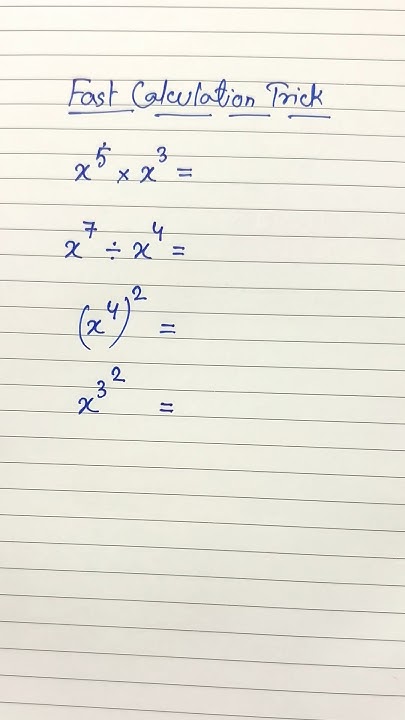 Fast Calculation Trick
x⁵ × x³ =
x⁷ ÷ x⁴ =
(x⁴)² =
x^3^2 =